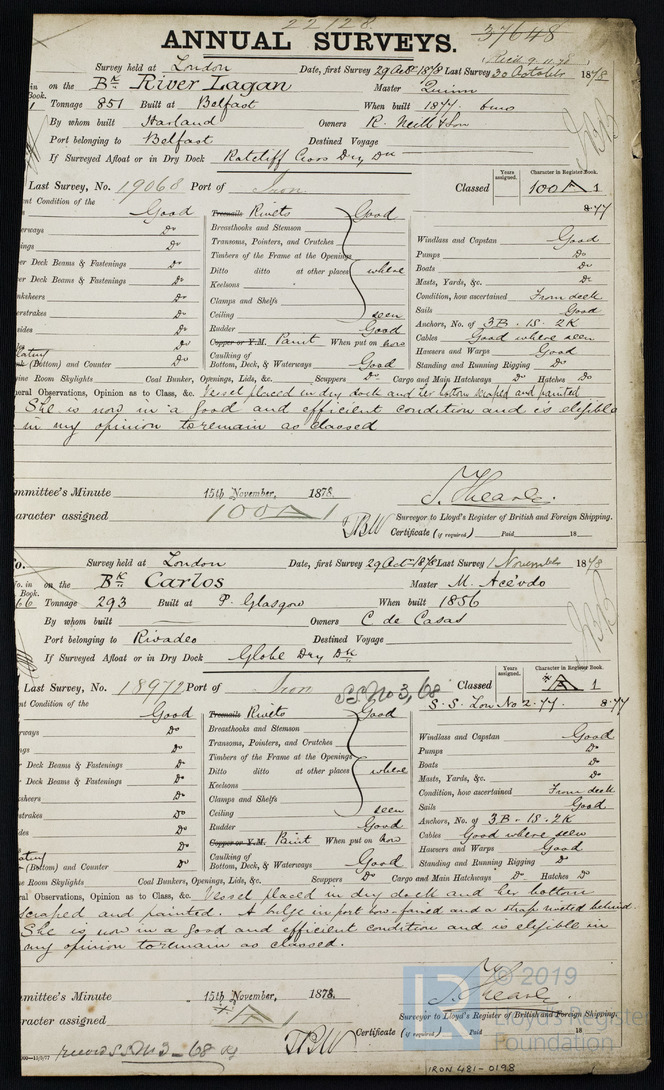 22128
37648
ANNUAL SURVEYS.
Rec'd 9.11.78
Survey held at London Date, first Survey 29 Octr 1878 Last Survey 30 October 1878
on the Bk River Lagan Master Quinn
Book.
Tonnage 851 Built at Belfast When built 1877
By whom built Harland Owners R. Neill & Son
Port belonging to Belfast Destined Voyage
If Surveyed Afloat or in Dry Dock Ratcliff Cross Dry Dk
Last Survey, No. 19068 Port of Iron Classed Years assigned. Character in Register Book. 100 A 1
8.77
nt Condition of the Good Treenails Rivets Good
erways Do Breasthooks and Stemson
ings Do Transoms, Pointers, and Crutches Windlass and Capstan Good
Timbers of the Frame at the Openings Pumps Do
er Deck Beams & Fastenings Do Ditto ditto at other places where Boats Do
er Deck Beams & Fastenings Do Keelsons Masts, Yards, &c. Do
nksheers Do Clamps and Shelfs Condition, how ascertained From deck
erstrakes Do Ceiling seen Sails Good
sides Do Rudder Good Anchors, No. of 3B. 1S. 2K
Do Copper or Y.M. Paint When put on now Cables Good where seen
(Bottom) and Counter Do Caulking of Bottom, Deck, & Waterways Good Hawsers and Warps Good
Standing and Running Rigging Do
ine Room Skylights Coal Bunker, Openings, Lids, &c. Scuppers Do Cargo and Main Hatchways Do Hatches Do
eral Observations, Opinion as to Class, &c. Vessel placed in dry dock and her bottom scraped and painted
She is now in a good and efficient condition and is eligible
in my opinion to remain as classed
mmittee's Minute 15th November, 1878.
aracter assigned 100 A 1
Surveyor to Lloyd's Register of British and Foreign Shipping.
Certificate (if required) Paid 18
o. Survey held at London Date, first Survey 29 Oct 1878 Last Survey 1 November 1878
o. in Book. on the Bk Carlos Master M. Acévdo
66 Tonnage 293 Built at P. Glasgow When built 1856
By whom built Owners C de Casas
Port belonging to Rivadeo Destined Voyage
If Surveyed Afloat or in Dry Dock Globe Dry Dk
Last Survey, No. 18972 Port of Iron S.S. No 3, 68 Classed Years assigned. Character in Register Book. A 1
S.S. Lon No 2.77. 8.77
t Condition of the Good Treenails Rivets Good
rways Do Breasthooks and Stemson
ngs Do Transoms, Pointers, and Crutches Windlass and Capstan Good
Timbers of the Frame at the Openings Pumps Do
r Deck Beams & Fastenings Do Ditto ditto at other places where Boats Do
r Deck Beams & Fastenings Do Keelsons Masts, Yards, &c. Do
ksheers Do Clamps and Shelfs Condition, how ascertained From deck
strakes Do Ceiling seen Sails Good
des Do Rudder Good Anchors, No. of 3B. 1S. 2K
Do Copper or Y.M. Paint When put on now Cables Good where seen
(Bottom) and Counter Do Caulking of Bottom, Deck, & Waterways Good Hawsers and Warps Good
Standing and Running Rigging Do
ne Room Skylights Coal Bunkers, Openings, Lids, &c. Scuppers Do Cargo and Main Hatchways Do Hatches Do
ral Observations, Opinion as to Class, &c. Vessel placed in dry dock and her bottom
scraped and painted. A bilge in port bow faired and a strap riveted behind.
She is now in a good and efficient condition and is eligible in
my opinion to remain as classed.
mmittee's Minute 15th November, 1878.
racter assigned A 1
Surveyor to Lloyd's Register of British and Foreign Shipping.
Certificate (if required) Paid 18
record S.S. No 3 - 68
© 2019
LR
Lloyd's Register
Foundation
IRON 481-0198